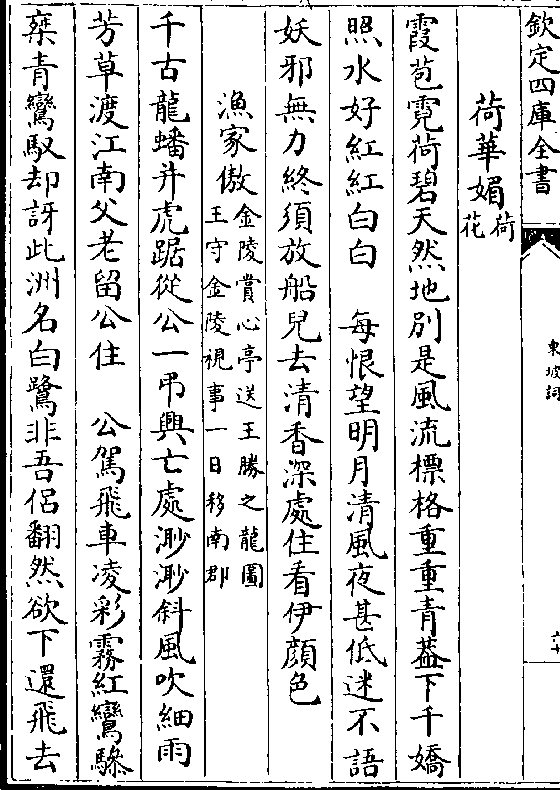 欽定四庫全書
東坡詞
六十
荷華媚荷花
霞苞霓荷碧天然地別是風流標格重重青葢下千嬌
照水好紅紅白白　每恨望明月清風夜甚低迷不語
妖邪無力終須放船兒去清香深處住看伊顔色
漁家傲金陵賞心亭送王勝之龍圖王守金陵視事一日移南郡
千古龍蟠并虎踞從公一弔興亡處渺渺斜風吹細雨
芳草渡江南父老留公住　公駕飛車凌彩霧紅鸞驂
椉青鸞馭却訝此洲名白鷺非吾侣翻然欲下還飛去